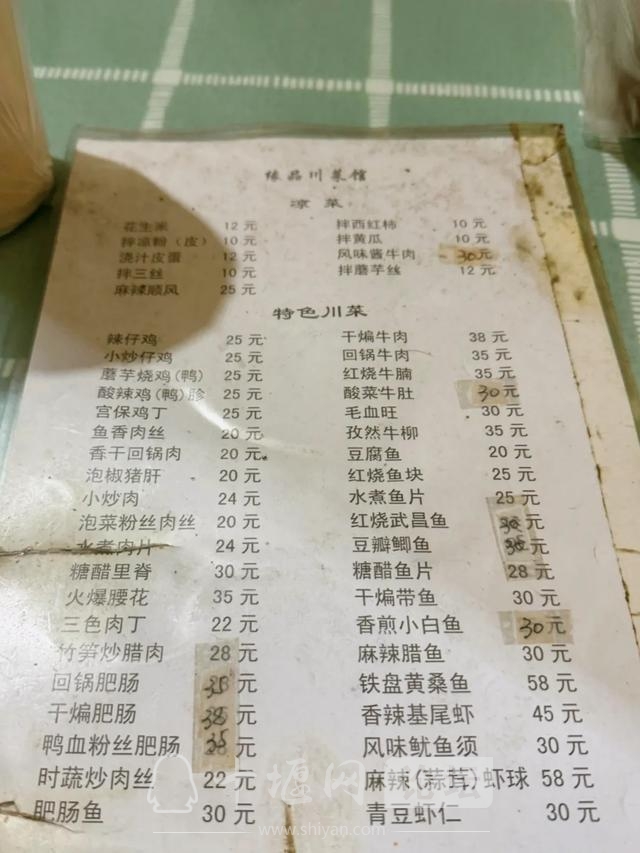 缘品川菜馆
凉菜
花生米 12元 拌西红柿 10元
拌凉粉（皮） 10元 拌黄瓜 10元
浇汁皮蛋 12元 风味酱牛肉 30元
拌三丝 10元 拌磨芋丝 12元
麻辣顺风 25元
特色川菜
辣仔鸡 25元 干煸牛肉 38元
小炒仔鸡 25元 回锅牛肉 35元
磨芋烧鸡(鸭) 25元 红烧牛腩 35元
酸辣鸡(鸭)胗 25元 酸菜牛肚 30元
宫保鸡丁 25元 毛血旺 30元
鱼香肉丝 20元 孜然牛柳 35元
香干回锅肉 20元 豆腐鱼 20元
泡椒猪肝 20元 红烧鱼块 25元
小炒肉 24元 水煮鱼片 25元
泡菜粉丝肉丝 20元 红烧武昌鱼 元
水煮肉片 24元 豆瓣鲫鱼 元
糖醋里脊 30元 糖醋鱼片 28元
火爆腰花 35元 干煸带鱼 30元
三色肉丁 22元 香煎小白鱼 30元
竹笋炒腊肉 28元 麻辣腊鱼 30元
回锅肥肠 元 铁盘黄桑鱼 58元
干煸肥肠 38元 香辣基尾虾 45元
鸭血粉丝肥肠 元 风味鱿鱼须 30元
时蔬炒肉丝 22元 麻辣(蒜茸)虾球 58元
肥肠鱼 30元 青豆虾仁 30元
十堰网
www.shiyan.com